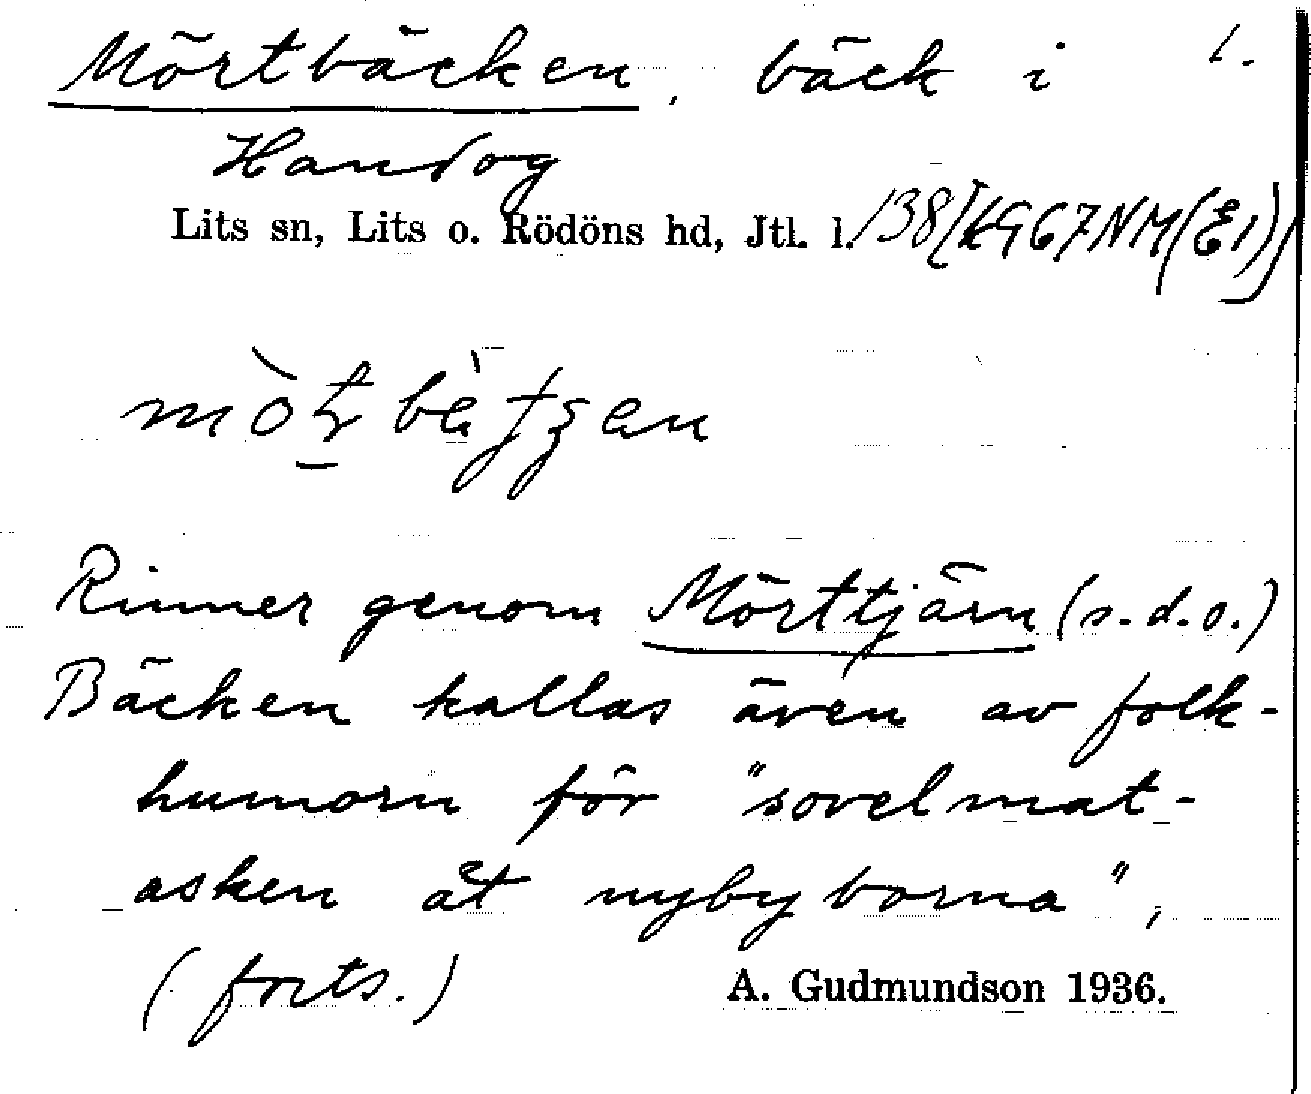 Mörtbäcken, bäck i 1.
Handog
Lits sn, Lits o. Rödöns hd, Jtl. l.
Rinner genom Mörttjärn (s.d.o.)
Bäcken kallas även av folk-
humorn för "sovelmat-
asken åt nybyborna",
(forts.)
A. Gudmundson 1936.